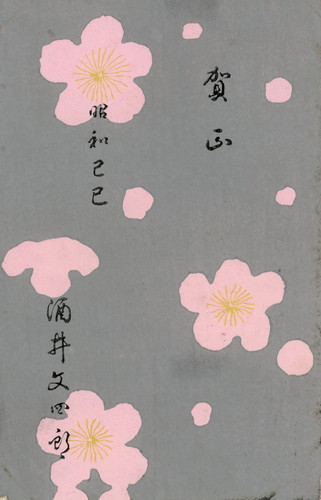 賀正
昭和己巳
酒井文四郎